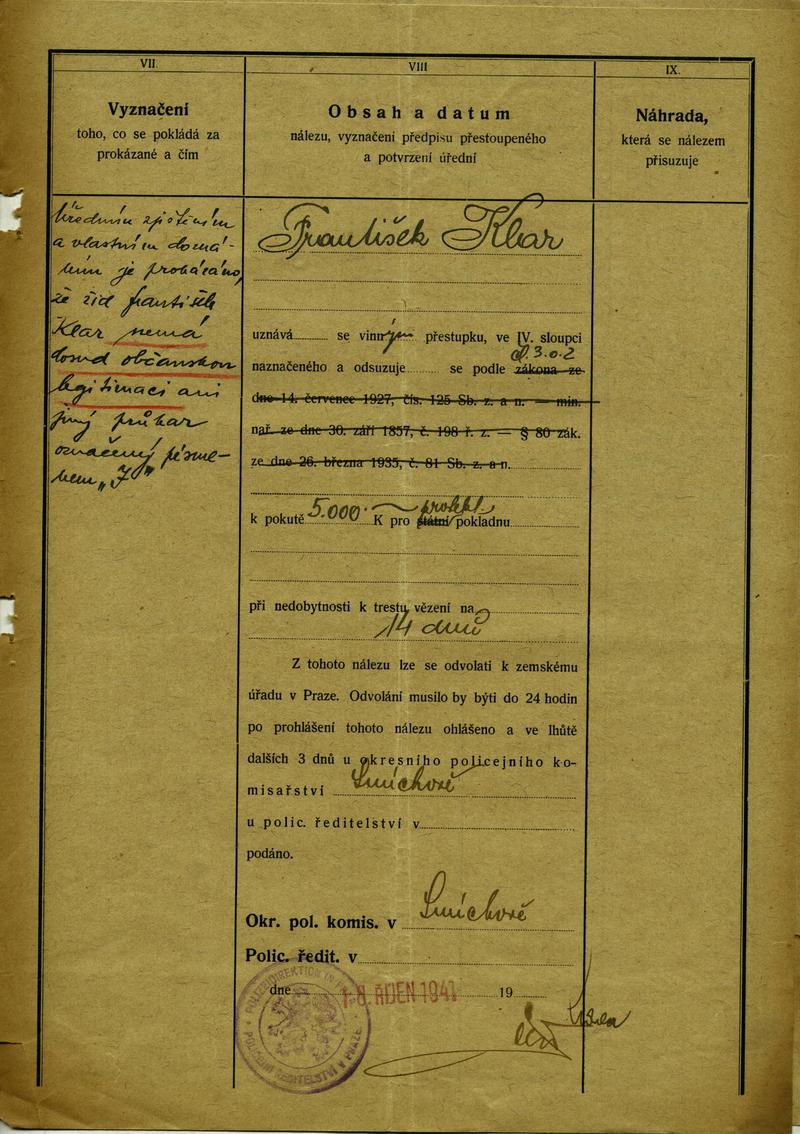 VII.
Vyznačení
toho, co se pokládá za
prokázané a čím
Úředním zjištěním
a vlastním dozná-
ním je prokázáno,
že žid František
Klar nemá
občanskou
legitimaci ani
jiný průkaz
označený písme-
nem „J"
VIII
Obsah a datum
nálezu, vyznačení předpisu přestoupeného
a potvrzení úřední
František Klar
uznává se vinným přestupku, ve IV. sloupci
naznačeného a odsuzuje se podle zákona ze
čl. 3. o. 2
dne 14. července 1927, čís. 125 Sb. z. a n. — min.
nař. ze dne 30. září 1857, č. 198 ř. z. — § 80 zák.
ze dne 26. března 1935, č. 81 Sb. z. a n.
k pokutě 5.000 K pro státní pokladnu
při nedobytnosti k trestu vězení na
14 dnů
Z tohoto nálezu lze se odvolati k zemskému
úřadu v Praze. Odvolání musilo by býti do 24 hodin
po prohlášení tohoto nálezu ohlášeno a ve lhůtě
dalších 3 dnů u okresního policejního ko-
misařství Smíchově
u polic. ředitelství v
podáno.
Okr. pol. komis. v Smíchově
Polic. ředit. v
dne 18. ŘÍJEN 1941 19
POLIZEIDIREKTION IN PRAG
POLICEJNÍ ŘEDITELSTVÍ V PRAZE
IX.
Náhrada,
která se nálezem
přisuzuje